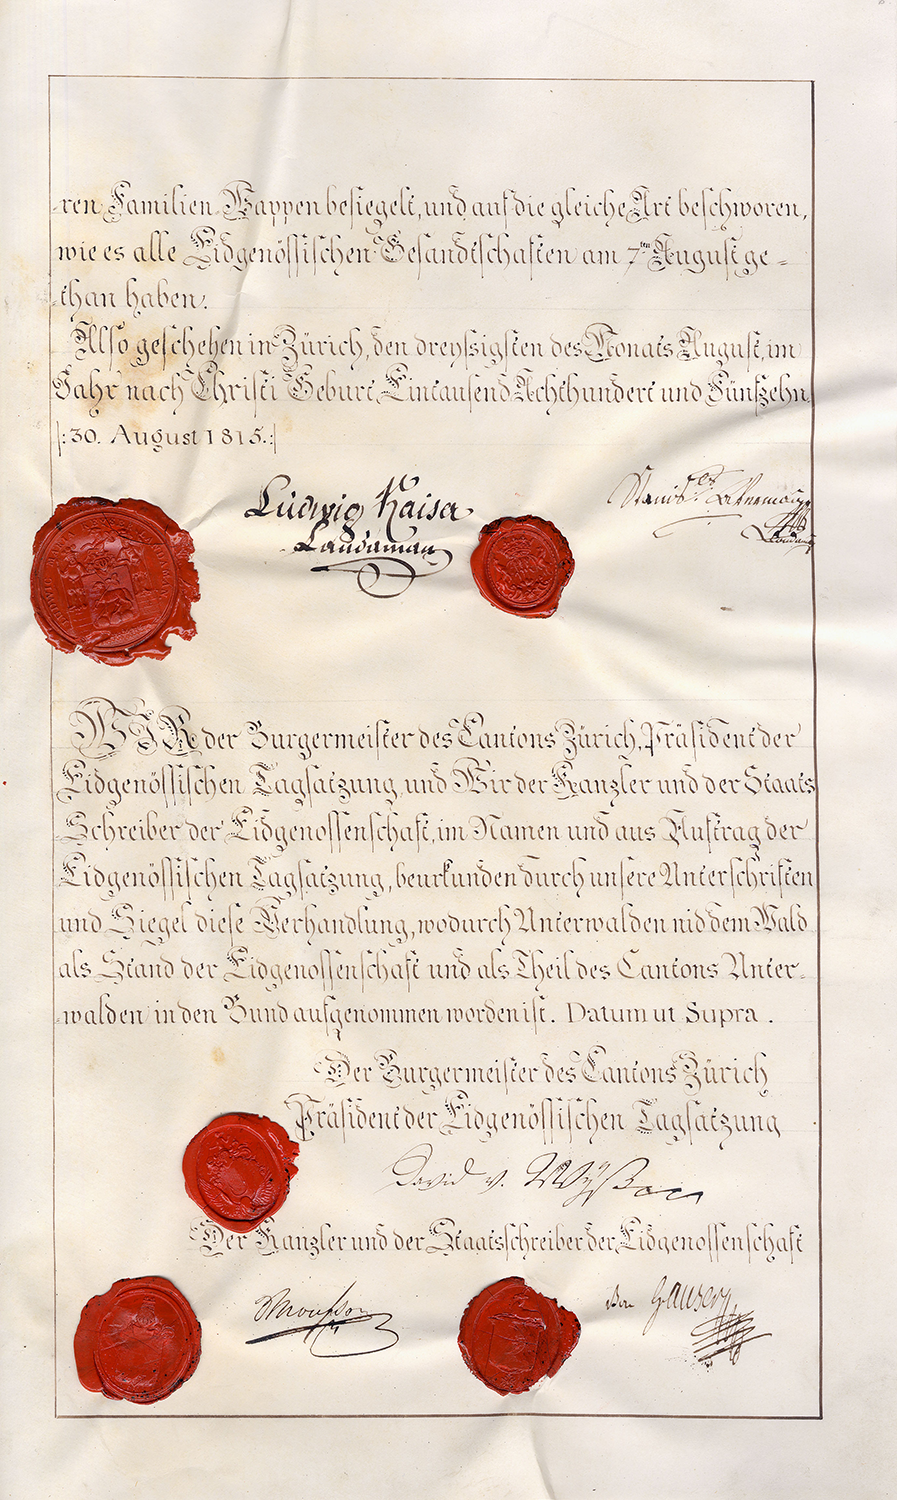 -ren Familien-Wappen besiegelt, und auf die gleiche Art beschworen,
wie es alle Eidgenössischen Gesandtschaften am 7ten August ge-
-than haben.
Also geschehen in Zürich, den dreyssigsten des Monats August, im
Jahr nach Christi Geburt, Eintausend Achthundert und Fünfzehn
|: 30. August 1815. :|
Ludwig Kaiser
Landaman
WIR der Burgermeister des Cantons Zürich, Präsident der
Eidgenössischen Tagsatzung, und Wir der Kanzler und der Staats
Schreiber der Eidgenossenschaft, im Namen und aus Auftrag der
Eidgenössischen Tagsatzung, beurkunden durch unsere Unterschriften
und Siegel diese Verhandlung, wodurch Unterwalden nid dem Wald
als Stand der Eidgenossenschaft und als Theil des Cantons Unter-
-walden in den Bund aufgenommen worden ist. Datum ut Supra.
Der Burgermeister des Cantons Zürich
Präsident der Eidgenössischen Tagsatzung
David v. Wyß
Der Kanzler und der Staatsschreiber der Eidgenossenschaft
Mousson